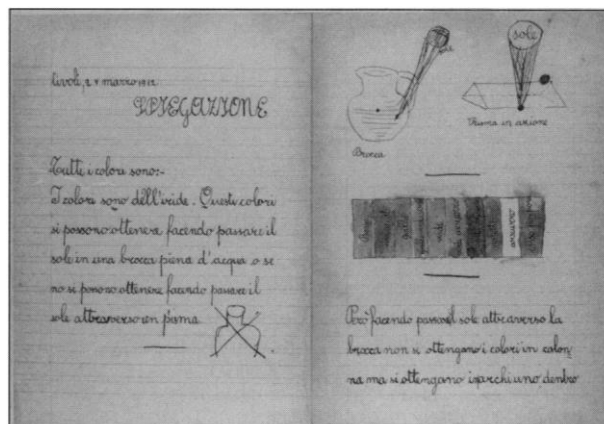 Tivoli, 2 marzo
SPIEGAZIONE
Tutti i colori sono:-
I colori sono dell'iride. Questi colori
si possono ottenera facendo passare il
sole in una brocca piena d'acqua o se
no si posono ottenere facendo passare il
sole attraverso un prisma
sole
Brocca
Prisma in azione
azzurro
Però facendo passare il sole attraverso la
brocca non si ottengano i colori in colon
na ma si ottengano in archi uno dentro